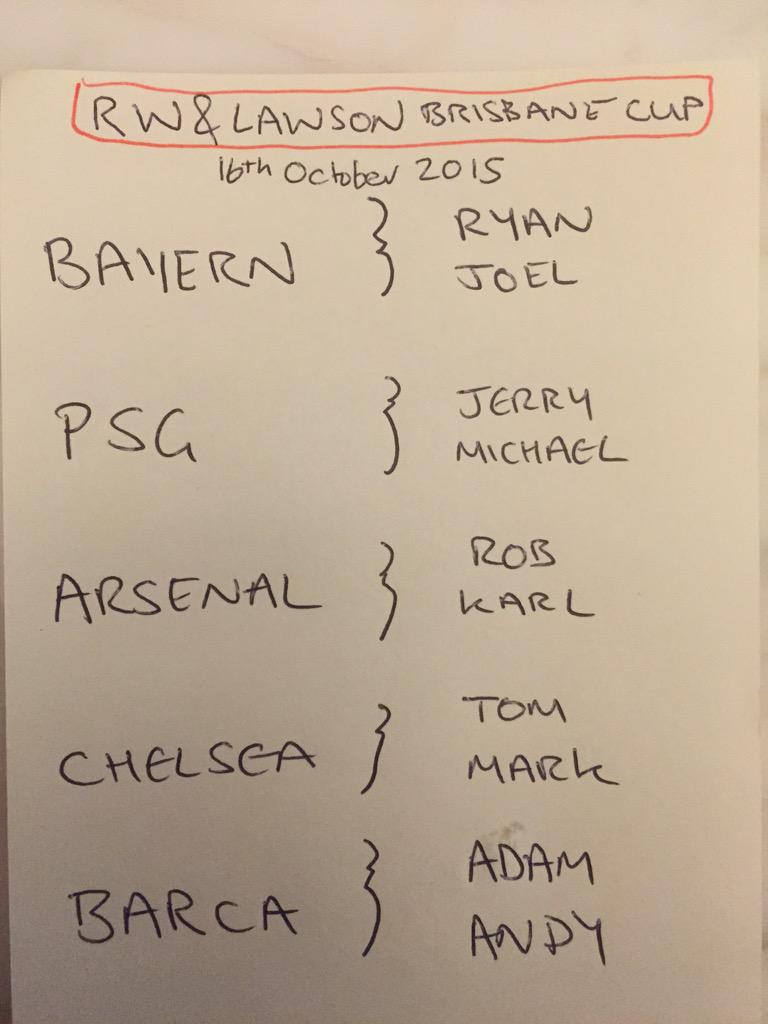 RW & LAWSON BRISBANE CUP
16th October 2015
BAYERN } RYAN
JOEL
PSG } JERRY
MICHAEL
ARSENAL } ROB
KARL
CHELSEA } TOM
MARK
BARCA } ADAM
ANDY